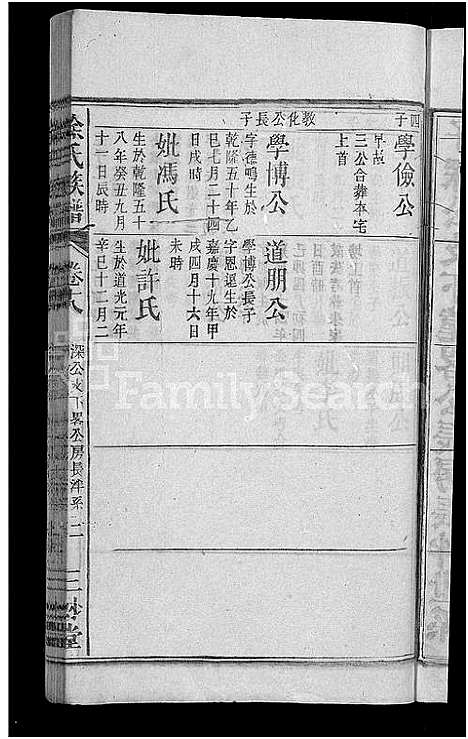 四子
學儉公
早故
三公合葬本宅
上首
教化公長子
學博公
字德鳴生於
乾隆五十年乙
巳七月二十四
日戌時
妣馮氏
生於乾隆五十
八年癸丑九月
十一日辰時
道朋公
學博公長子
字恩諟生於
嘉慶十九年甲
戌四月十六日
未時
妣許氏
生於道光元年
辛巳十二月二
徐氏族譜
卷之八
深公支下畧公房長泮系
二
三妙堂
FamilySearch